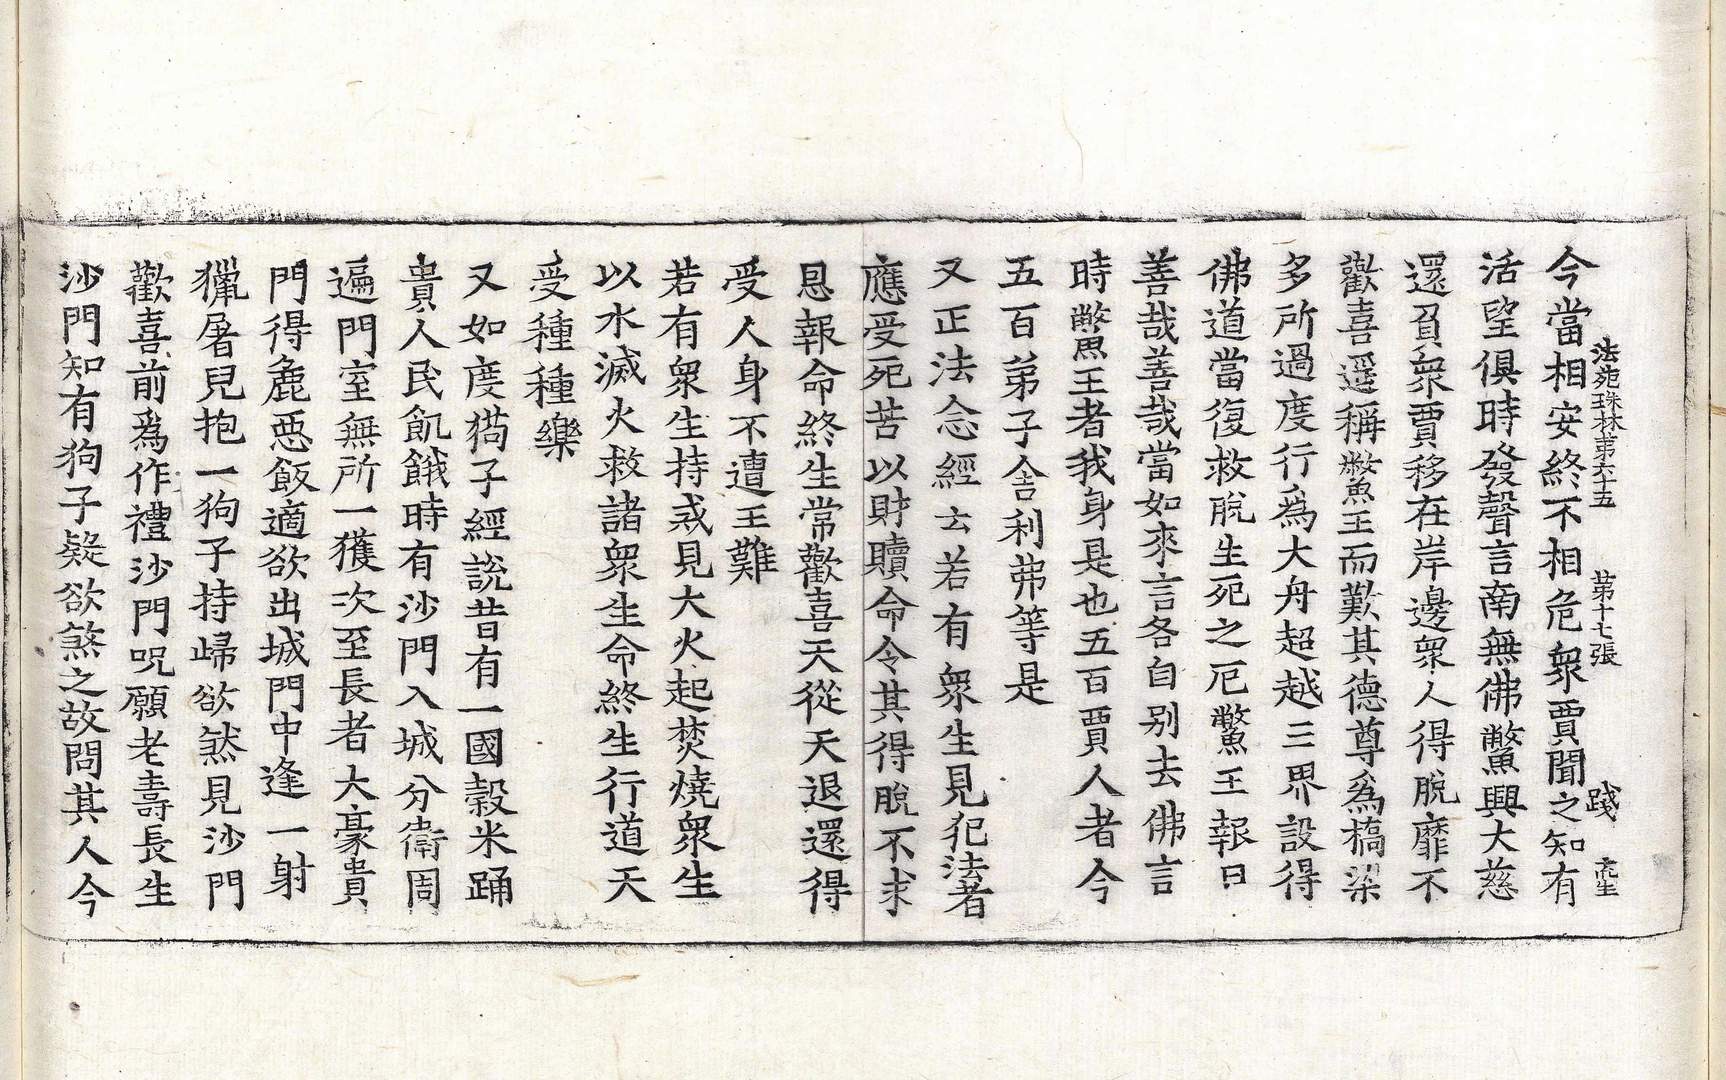 法苑珠林第六十五　第十七張　踐
今當相安終不相危衆賈聞之知有
活望俱時發聲言南無佛鼈興大慈
還負衆賈移在岸邊衆人得脫靡不
歡喜遥稱鼈王而歎其德尊爲橋梁
多所過度行爲大舟超越三界設得
佛道當復救脫生死之厄鼈王報曰
善哉善哉當如來言各自别去佛言
時鼈王者我身是也五百賈人者今
五百弟子舍利弗等是
又正法念經云若有衆生見犯法者
應受死苦以財贖命令其得脫不求
恩報命終生常歡喜天從天退還得
受人身不遭王難
若有衆生持戒見大火起焚燒衆生
以水滅火救諸衆生命終生行道天
受種種樂
又如度狗子經說昔有一國穀米踊
貴人民飢餓時有沙門入城分衛周
遍門室無所一獲次至長者大豪貴
門得麁惡飯適欲出城門中逢一射
獵屠兒抱一狗子持歸欲煞見沙門
歡喜前爲作禮沙門呪願老壽長生
沙門知有狗子疑欲煞之故問其人今